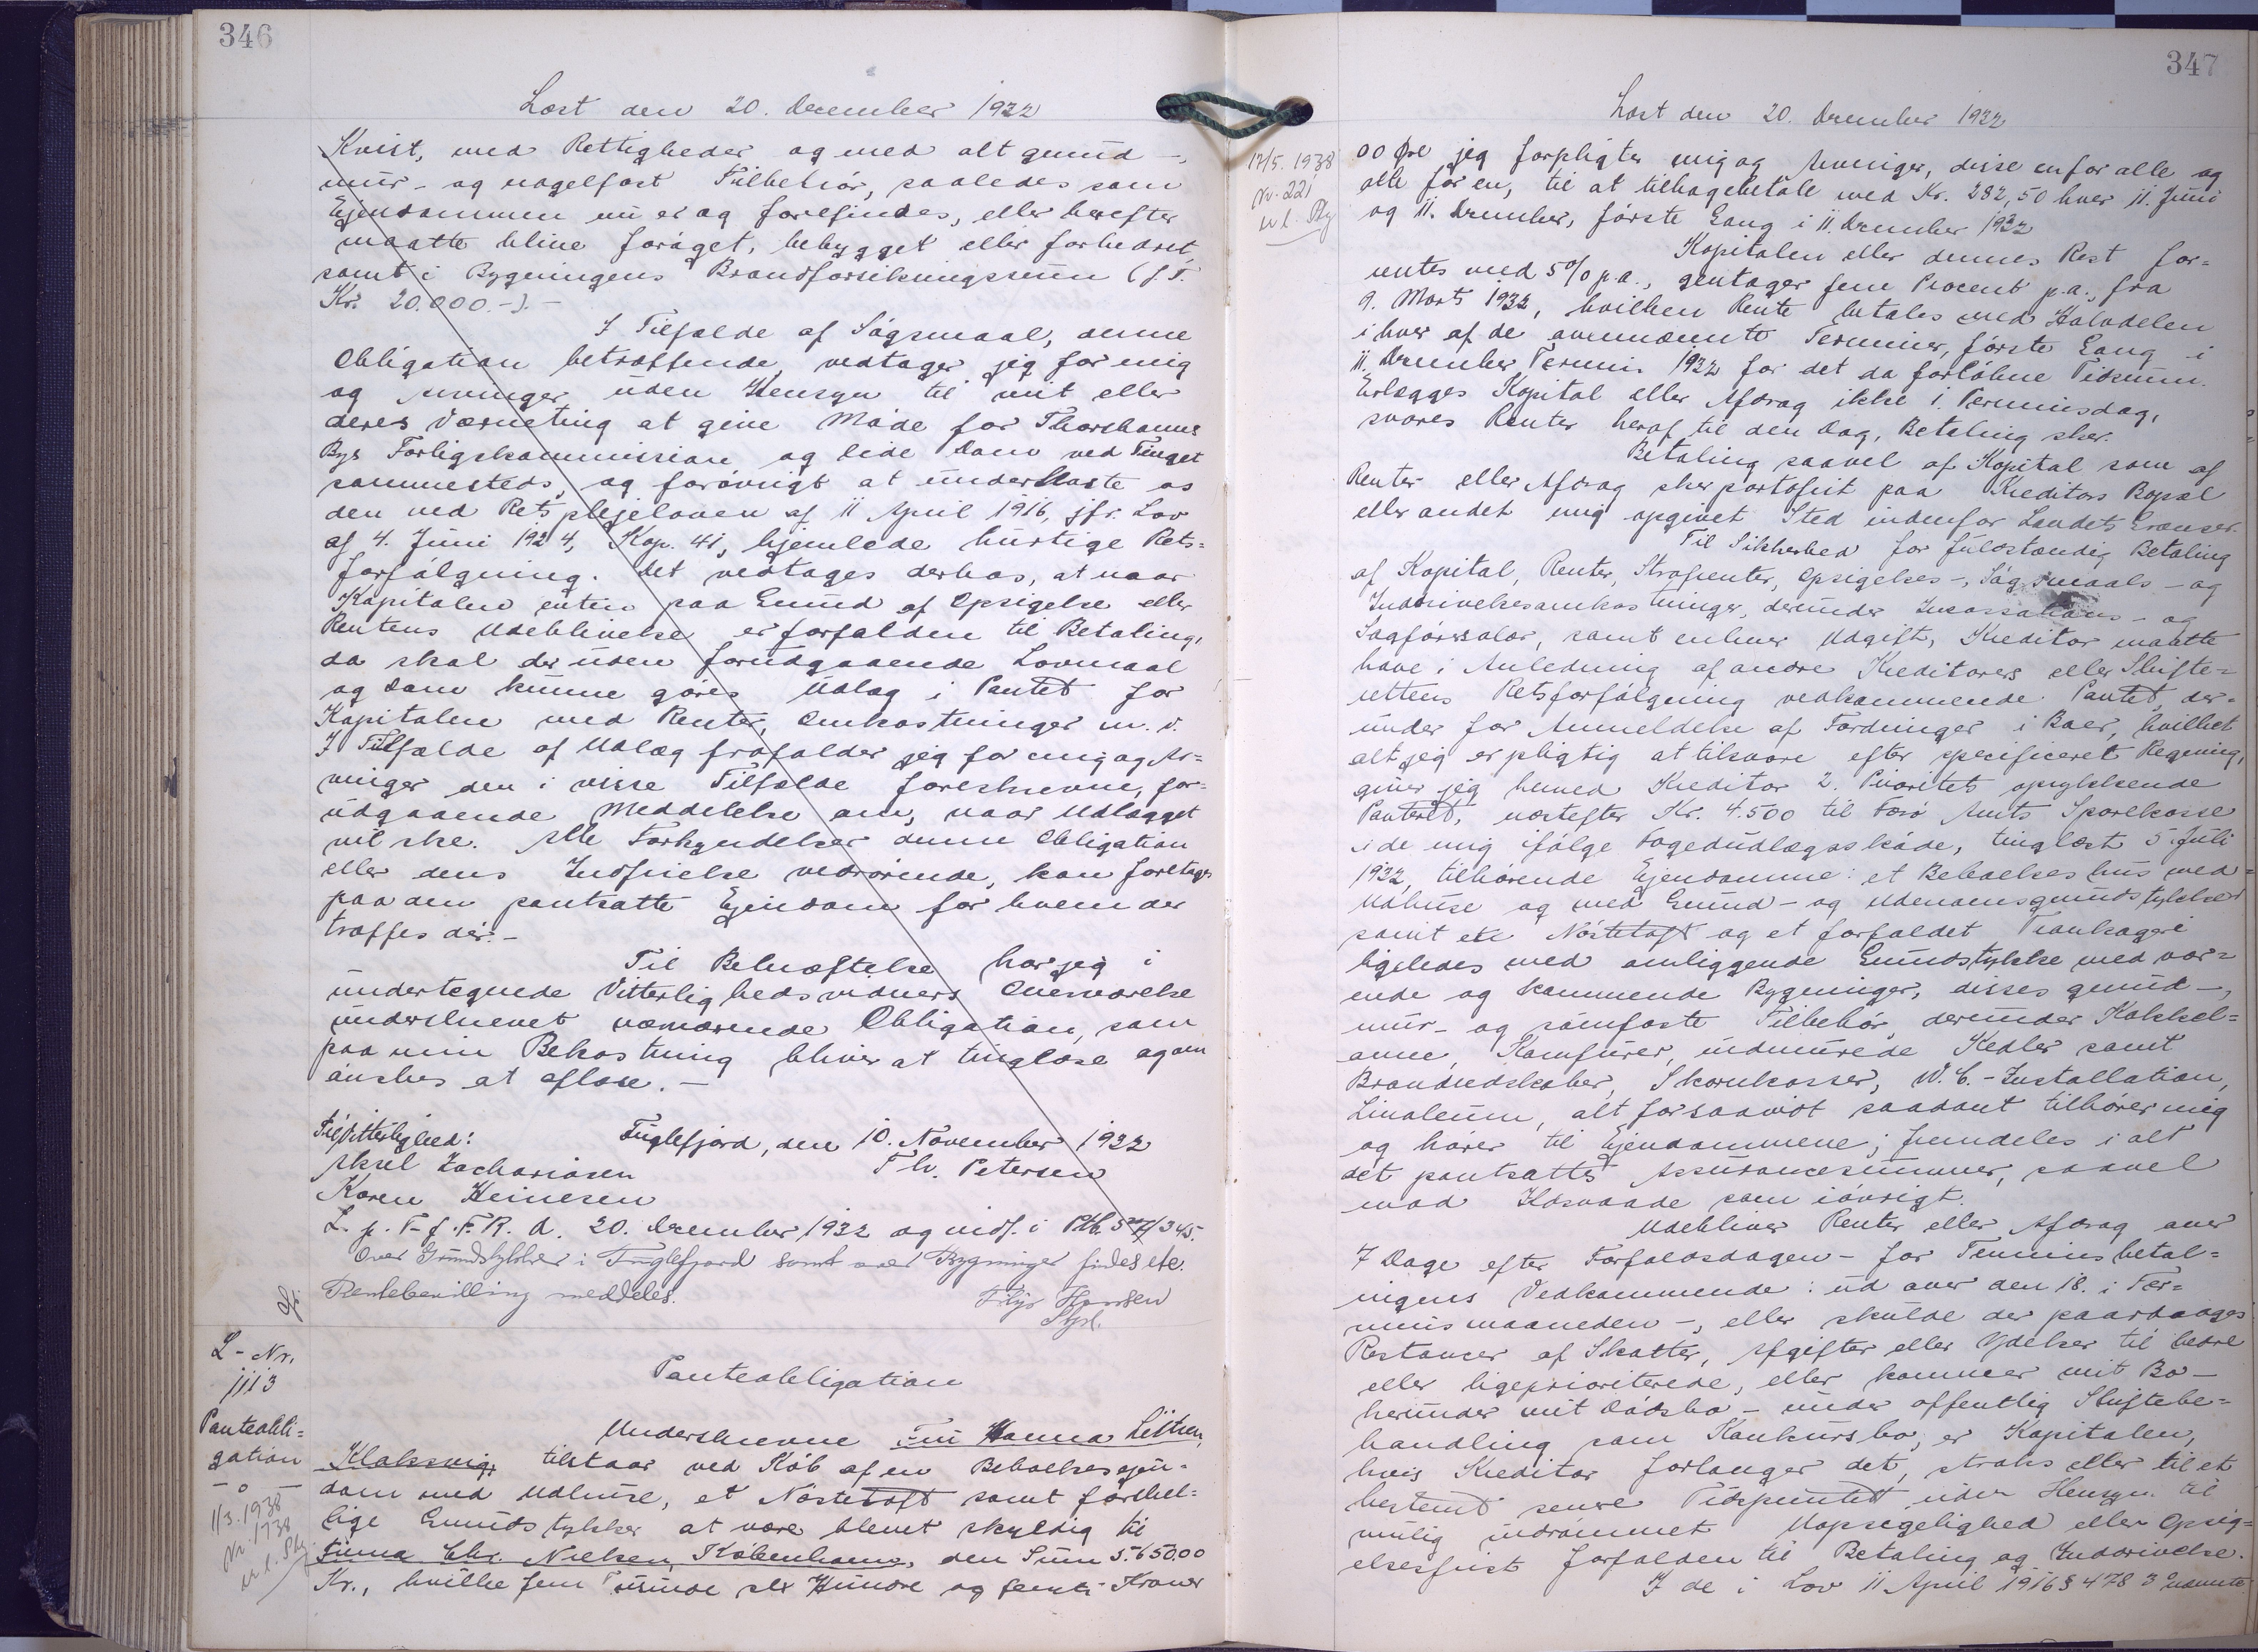 346
Læst den 20. December 1932
Kvist, med Rettigheder og med alt grund-,
mur- og nagelfast Tilbehør, saaledes som
Ejendommen nu er og forefindes, eller herefter
maatte blive forøget, bebygget eller forbedret,
samt i Bygningens Brandforsikringssum (f. T.
Kr. 20.000.-).-
I Tilfælde af Søgsmaal, denne
Obligation betræffende, vedtager jeg for mig
og Arvinger uden Hensyn til mit eller
deres Værneting at give Møde for Thorshavns
Bys Forligskommission og lide Dom ved Tinget
sammesteds, og forøvrigt at underkaste os
den ved Retsplejeloven af 11 April 1916, jfr. Lov
af 4. Juni 1924, Kap. 41, hjemlede hurtige Rets=
forfølgning. Det vedtages derhos, at naar
Kapitalen enten paa Grund af Opsigelse eller
Rentens Udeblivelse er forfalden til Betaling,
da skal der uden forudgaaende Lovmaal
og Dom kunne gøres Udlæg i Pantet for
Kapitalen med Renter, Omkostninger m. v.
I Tilfælde af Udlæg frafalder jeg for mig og Ar=
vinger den i visse Tilfælde foreskrevne, for=
udgaaende Meddelelse om, naar Udlægget
vil ske. Alle Forkyndelser denne Obligation
eller dens Indfrielse vedrørende, kan foretages
paa den pantsatte Ejendom for hvem der
træffes dér.-
Til Bekræftelse har jeg i
undertegnede Vitterlighedsvidners Overværelse
underskrevet nærværende Obligation, som
paa min Bekostning bliver at tinglæse og om
ønskes at aflæse.-
Til Vitterlighed:
Fuglefjord, den 10. November 1932
Aksel Zachariasen
Th. Petersen
Karen Heinesen
L. p. T. f. F. R. d. 20. December 1932 og indf. i Ptb. 5 /345.
Over Grundstykker i Fuglefjord samt over Bygninger findes ete.
Rentebevilling meddeles.
Thys Hansen
L-Nr.
1113
Panteobli=
gation
- o -
1/3. 1938
Nr. 1738
Panteobligation
Underskrevne Fru Hanna Listsen,
Klaksvig, tilstaar ved Køb af en Beboelsesejen=
dom med Udhuse, et Nøstetoft samt forskel=
lige Grundstykker at være blevet skyldig til
Chr. Nielsen, København, den Sum 5.650.00
Kr., hvilke fem Tusinde seks Hundre og femti Kroner
347
Læst den 20. December 1932
17/5. 1938
Nr. 221
00 Øre jeg forpligter mig og Arvinger, disse en for alle og
alle for en, til at tilbagebetale med Kr. 282,50 hver 11. Juni
og 11. December, første Gang i 11. December 1932
Kapitalen eller dennes Rest for=
rentes med 5% p.a., gentager fem Procent p.a., fra
9. Marts 1932, hvilken Rente betales med Halvdelen
i hver af de ovennævnte Terminer, første Gang i
11. December Termin 1932 for det da forløbne Tidsrum.
Erlægges Kapital eller Afdrag ikke i Terminsdag,
svares Renter heraf til den Dag, Betaling sker.
Betaling saavel af Kapital som af
Renter eller Afdrag sker portofrit paa Kreditors Bopæl
eller andet mig opgivet Sted indenfor Landets Grænser.
Til Sikkerhed for fuldstændig Betaling
af Kapital, Renter, Strafrenter, Opsigelses-, Søgsmaals- og
Inddrivelsesomkostninger, derunder Incassations- og
Sagførersalær, samt enhver Udgift, Kreditor maatte
have i Anledning af andre Kreditorers eller Skifte=
rettens Retsforfølgning vedkommende Pantet, der=
under for Anmeldelse af Fordringer i Boer, hvilket
alt jeg er pligtig at tilsvare efter specificeret Regning,
giver jeg herved Kreditor 2. Prioritets oprykkende
Panteret, næstefter Kr. 4.500 til Færø Amts Sparekasse
i de mig ifølge Fogedudlægsskøde, tinglæst 5. Juli
1932, tilhørende Ejendomme: et Beboelseshus med
Udhuse og med Grund- og Udenomsgrundstykker
samt ete Nøstetoft og et forfaldet Trankogeri
ligeledes med omliggende Grundstykke med vær=
ende og kommende Bygninger, disses grund-,
mur- og sømfaste Tilbehør, derunder Kakkel=
ovne, Komfurer, indmurede Kedler samt
Brandredskaber, Skarnkasser, W.C.-Installation,
Linoleum, alt forsaavidt saadant tilhører mig
og hører til Ejendommene; fremdeles i alt
det pantsattes Assurancesummer, saavel
mod Ildsvaade som iøvrigt.
Udebliver Renter eller Afdrag over
7 Dage efter Forfaldsdagen- for Terminsbetal=
ningens Vedkommende: ud over den 18. i Ter=
minsmaaneden-, eller skulde der paadrages
Restancer af Skatter, Afgifter eller Ydelser til bedre
eller ligeprioriterede, eller kommer mit Bo-
herunder mit Dødsbo- under offentlig Skiftebe=
handling som Konkursbo, er Kapitalen,
hvis Kreditor forlanger det, straks eller til et
bestemt senere Tidspunkt uden Hensyn til
mulig indrømmet Uopsigelighed eller Opsig=
elsesfrist forfalden til Betaling og Inddrivelse.
I de i Lov 11 April 1916 § 478 3°